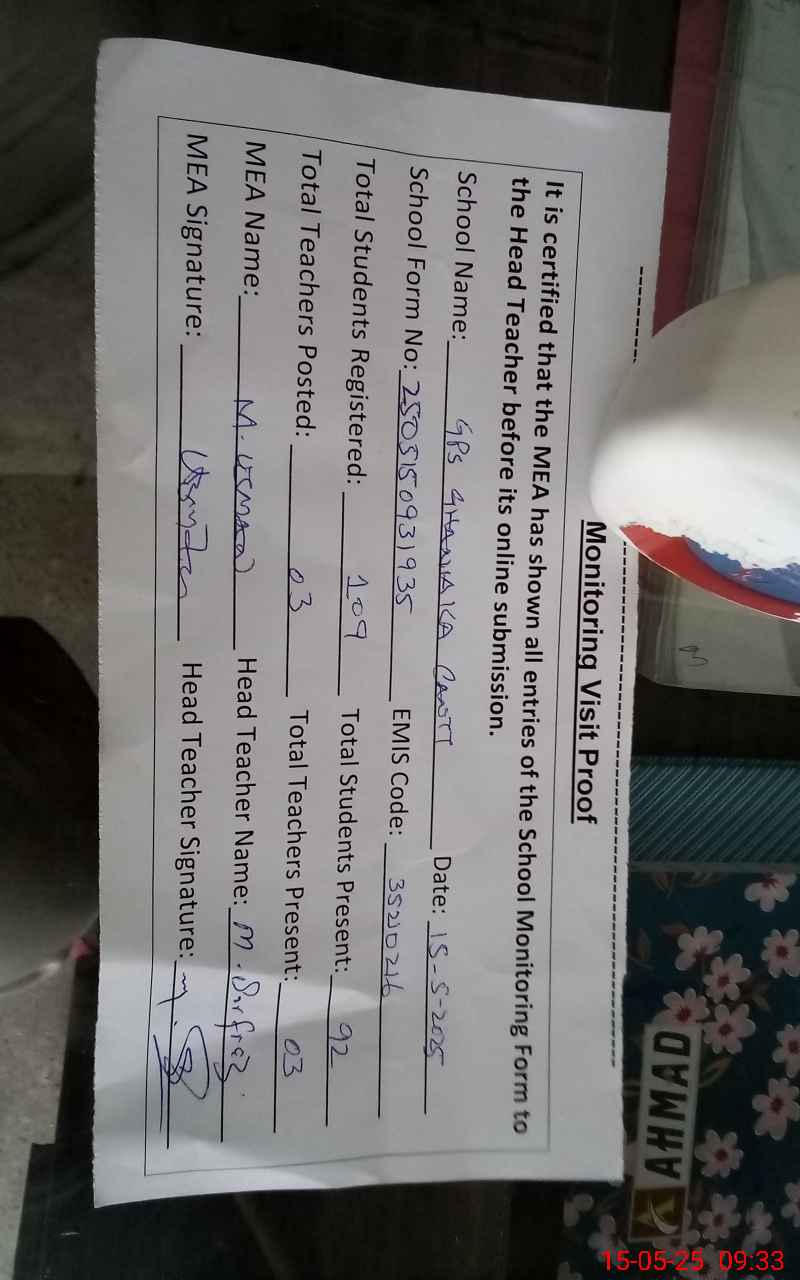 Monitoring Visit Proof
It is certified that the MEA has shown all entries of the School Monitoring Form to
the Head Teacher before its online submission.
School Name: GPS GHANIAKA CANTT Date: 15-5-2025
School Form No: 250515093 1935 EMIS Code: 35210216
Total Students Registered: 109 Total Students Present: 92
Total Teachers Posted: 03 Total Teachers Present: 03
MEA Name: M. USMAN Head Teacher Name: M. Sarfraz
MEA Signature: Head Teacher Signature:
AHMAD
15-05-25 09:33